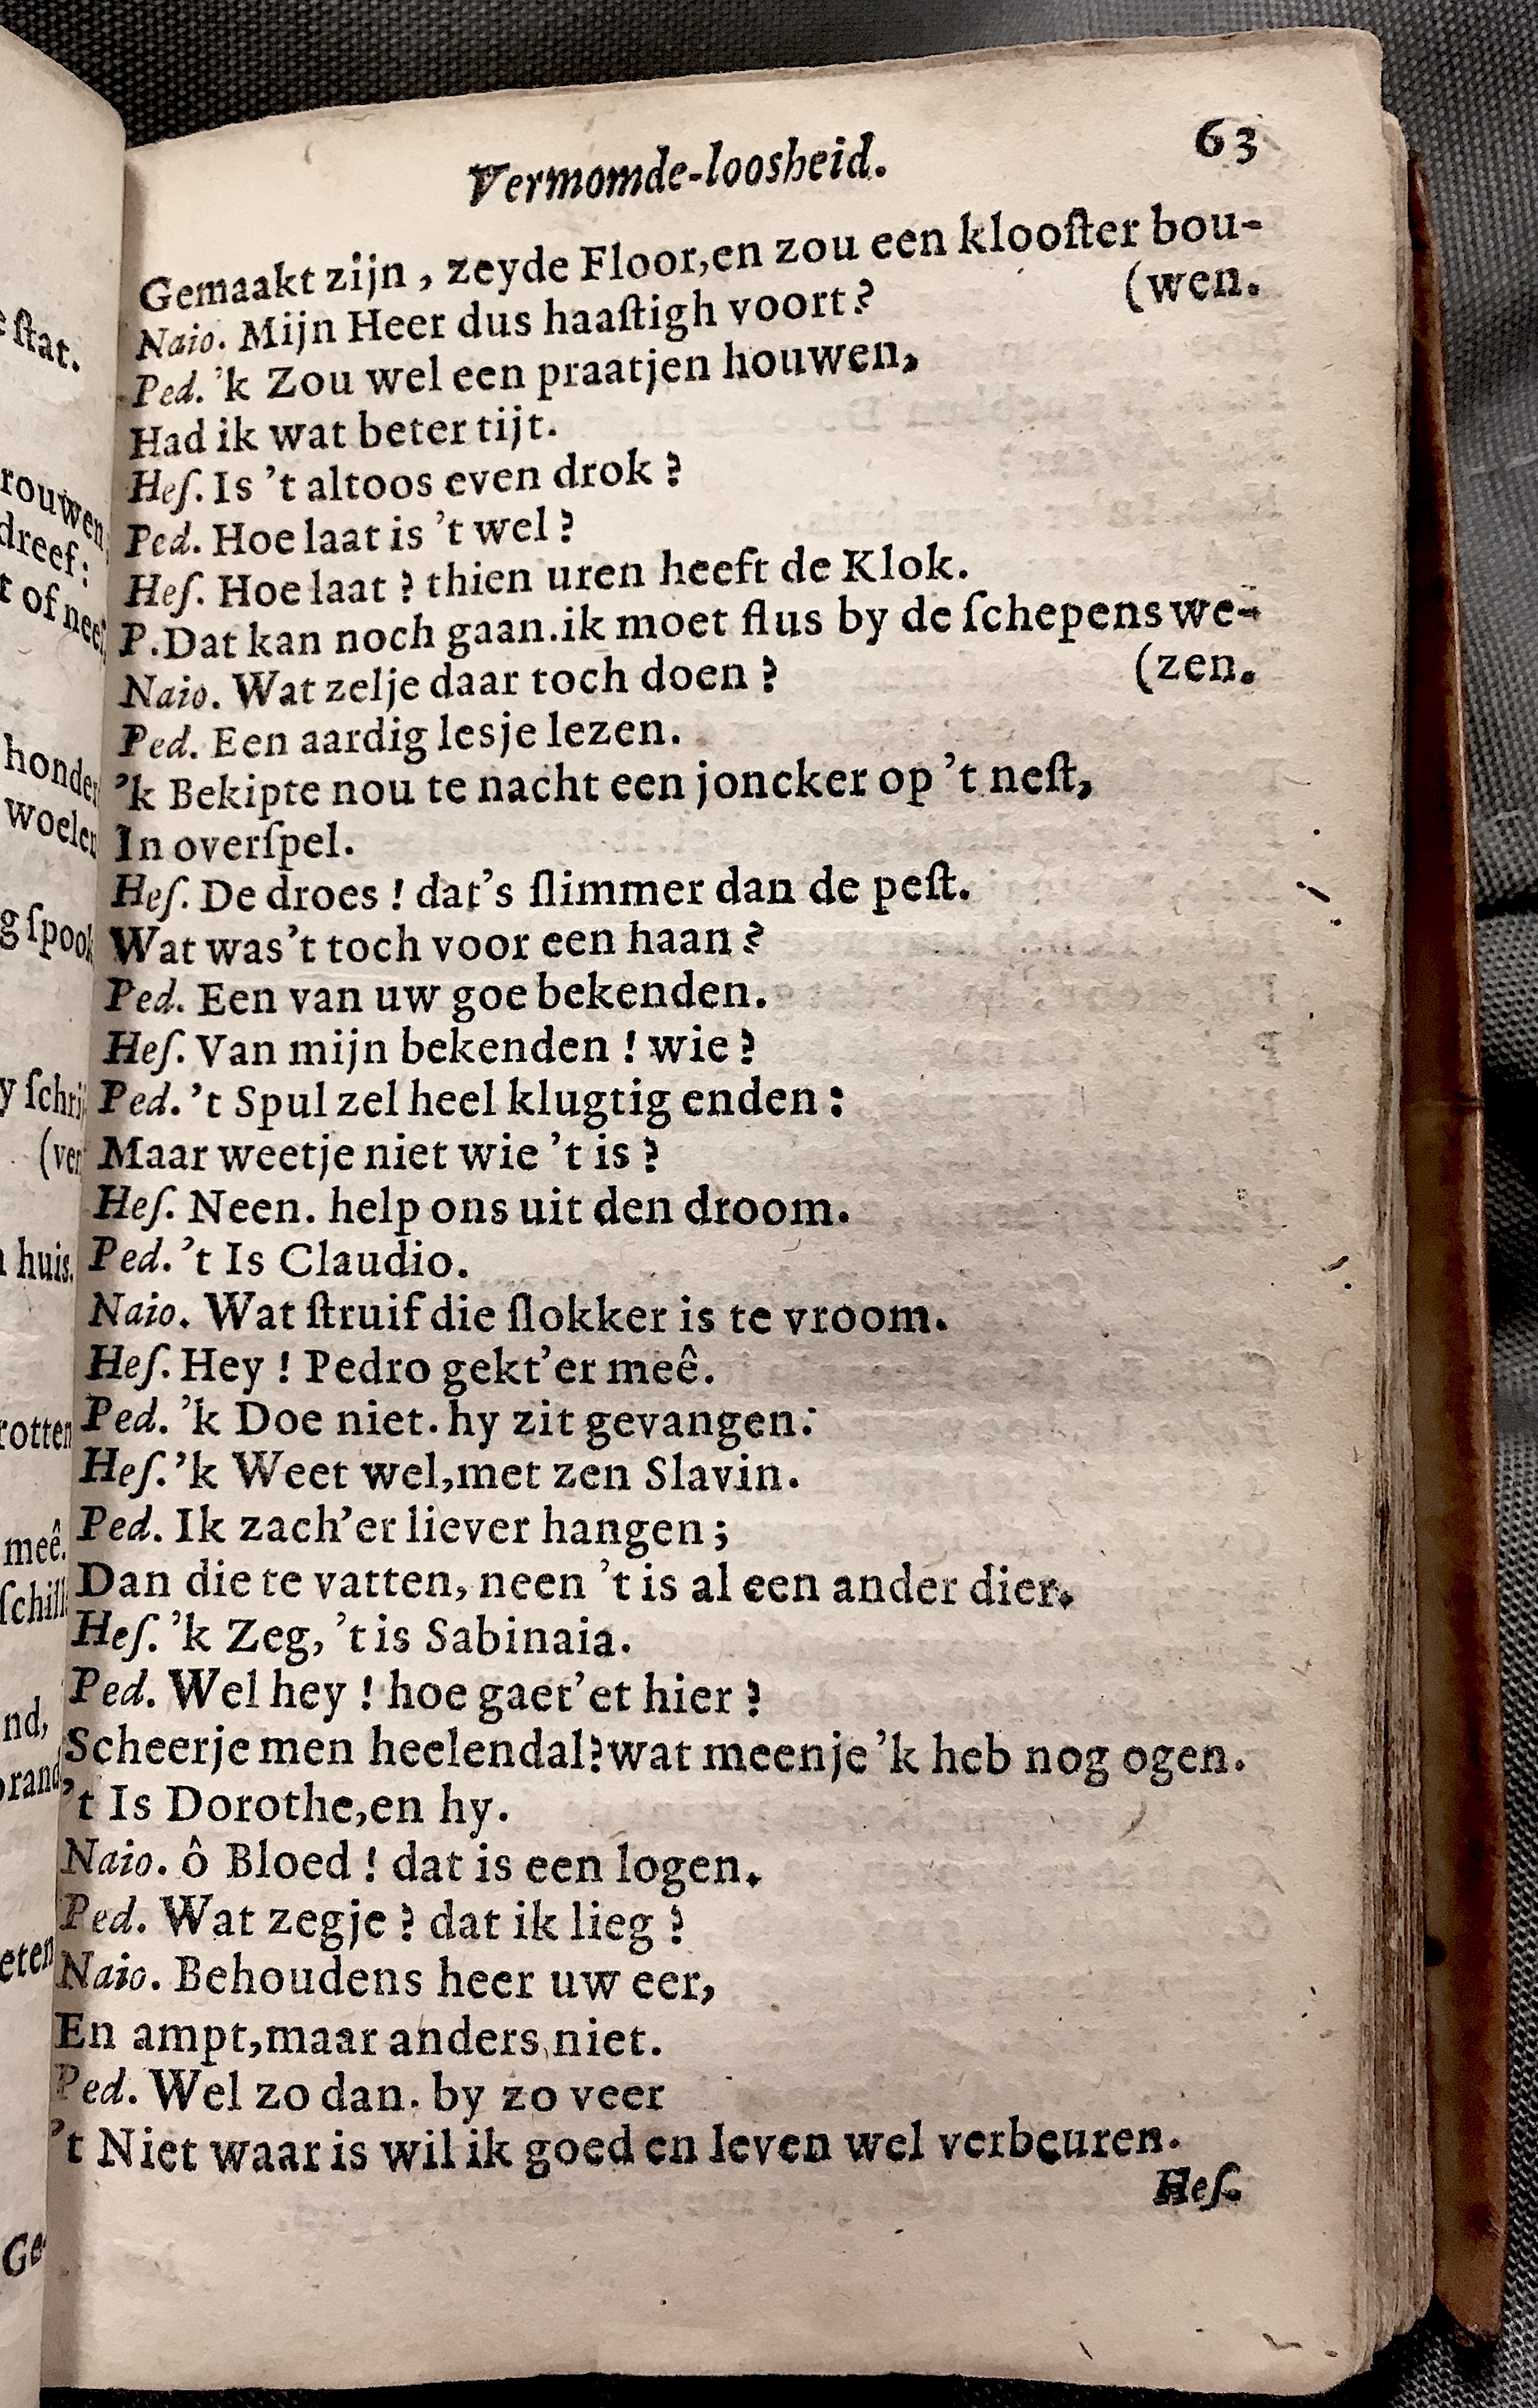 Vermomde-loosheid. 63
Gemaakt zijn, zeyde Floor,en zou een klooſter bou-
(wen.
Naio. Mijn Heer dus haaſtigh voort?
Ped. 'k Zou wel een praatjen houwen,
Had ik wat beter tijt.
Heſ. Is 't altoos even drok?
Ped. Hoe laat is 't wel?
Heſ. Hoe laat? thien uren heeft de Klok.
P.Dat kan noch gaan.ik moet flus by de ſchepens we-
(zen.
Naio. Wat zelje daar toch doen?
Ped. Een aardig lesje lezen.
'k Bekipte nou te nacht een joncker op 't neſt,
In overſpel.
Heſ. De droes! dat's ſlimmer dan de peſt.
Wat was't toch voor een haan?
Ped. Een van uw goe bekenden.
Heſ. Van mijn bekenden! wie?
Ped. 't Spul zel heel klugtig enden:
Maar weetje niet wie 't is?
Heſ. Neen. help ons uit den droom.
Ped. 't Is Claudio.
Naio. Wat ſtruif die ſlokker is te vroom.
Heſ. Hey! Pedro gekt'er meê.
Ped. 'k Doe niet. hy zit gevangen:
Heſ. 'k Weet wel,met zen Slavin.
Ped. Ik zach'er liever hangen;
Dan die te vatten, neen 't is al een ander dier.
Heſ. 'k Zeg, 't is Sabinaia.
Ped. Wel hey! hoe gaet'et hier?
Scheerje men heelendal?wat meenje 'k heb nog ogen.
't Is Dorothe,en hy.
Naio. ô Bloed! dat is een logen.
Ped. Wat zegje? dat ik lieg?
Naio. Behoudens heer uw eer,
En ampt,maar anders niet.
Ped. Wel zo dan. by zo veer
't Niet waar is wil ik goed en leven wel verbeuren.
Heſ.